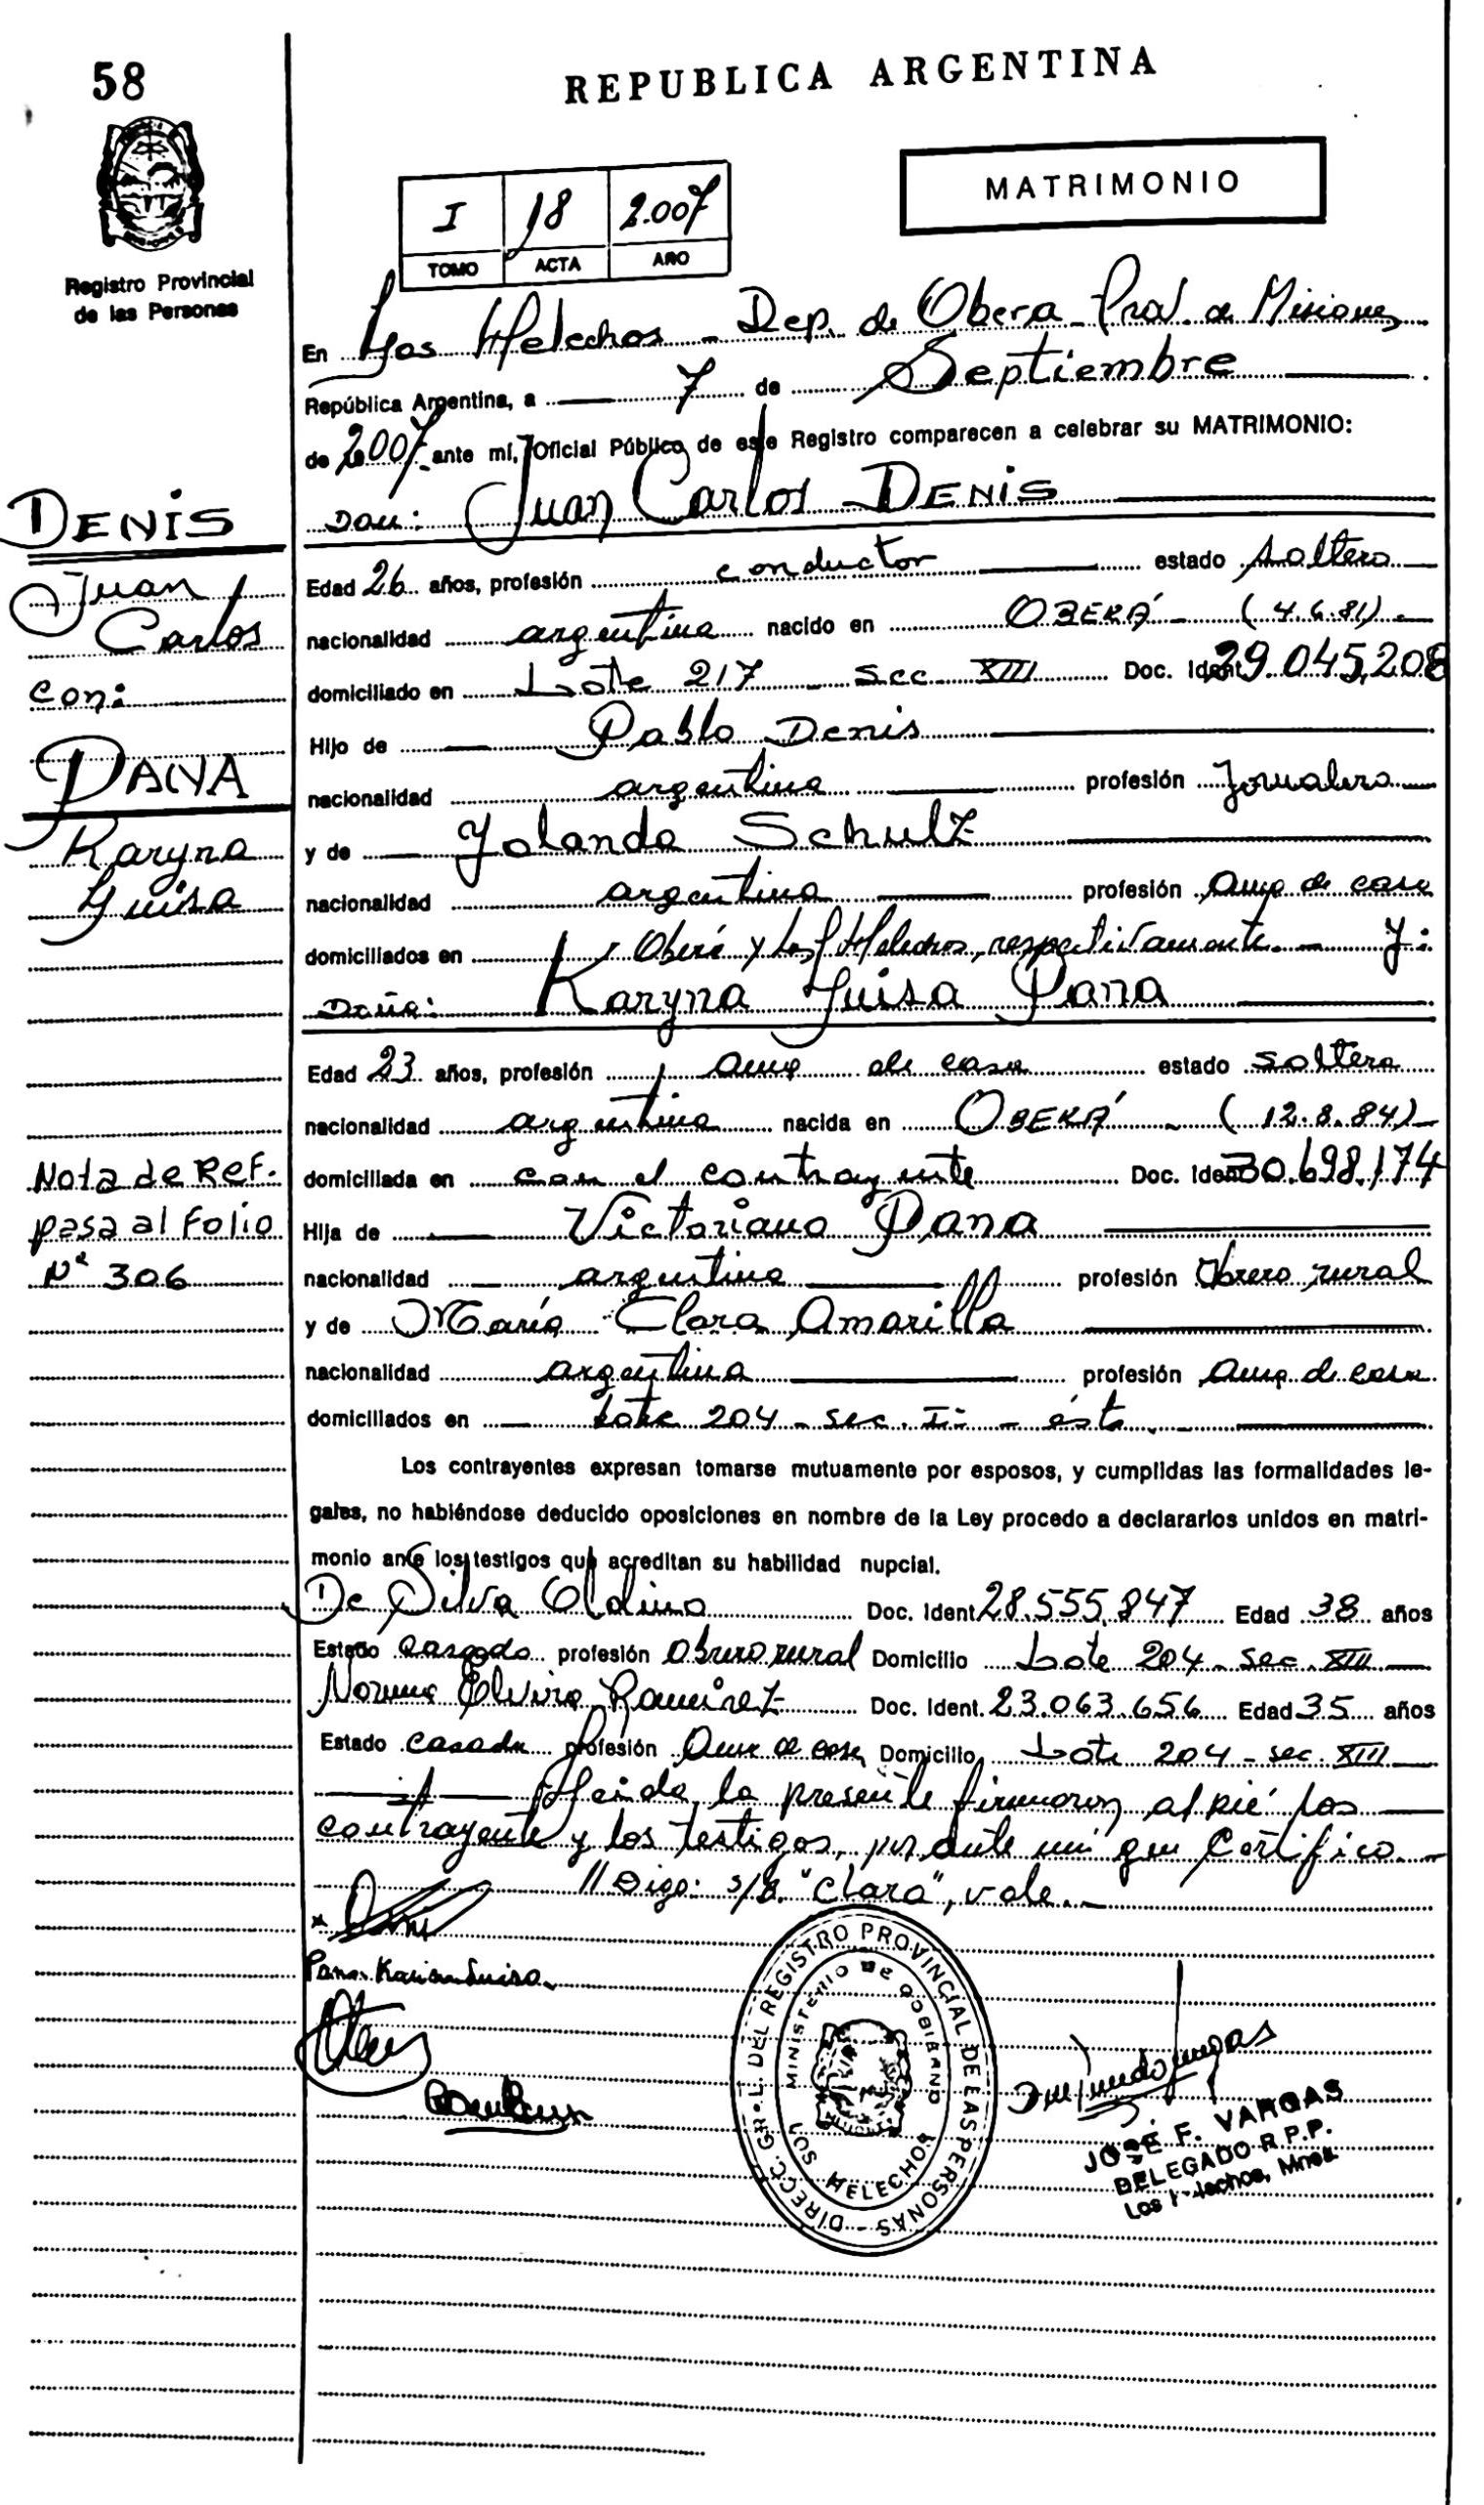 58
REPUBLICA ARGENTINA
MATRIMONIO
I 18 2.007
TOMO ACTA AÑO
Registro Provincial
de las Personas
En Los Helechos - Dep. de Oberá - Prov. de Misiones
República Argentina, a 7 de Septiembre
de 2.007 ante mí, Oficial Público de este Registro comparecen a celebrar su MATRIMONIO:
Don: Juan Carlos DENIS
Edad 26 años, profesión conductor estado soltero
nacionalidad argentina nacido en OBERÁ - (4.6.81) -
domiciliado en Lote 217 - Sec XIII Doc. Ident 29.045,208
Hijo de Pablo Denis
nacionalidad argentina profesión Jornalero
y de Yolanda Schulz
nacionalidad argentina profesión ama de casa
domiciliados en Oberá y Los Helechos, respectivamente. - y:
Doña: Karyna Luisa Pana
Edad 23 años, profesión ama de casa estado soltera
nacionalidad argentina nacida en OBERÁ - (12.8.84) -
domiciliada en con el contrayente Doc. Ident 30.698.174
Hija de Victoriano Pana
nacionalidad argentina profesión Obrero rural
y de María Clara Amarilla
nacionalidad argentina profesión ama de casa
domiciliados en Lote 204 - sec. - ésta
Los contrayentes expresan tomarse mutuamente por esposos, y cumplidas las formalidades le-
gales, no habiéndose deducido oposiciones en nombre de la Ley procedo a declararlos unidos en matri-
monio ante los testigos que acreditan su habilidad nupcial.
De Silva Aldino Doc. Ident 28.555,847 Edad 38 años
Estado casado profesión Obrero rural Domicilio Lote 204 - sec. XIII
Norma Elvira Ramirez Doc. Ident. 23.063.656 Edad 35 años
Estado casada profesión Ama de casa Domicilio Lote 204 - sec. XIII
Leída la presente firmaron al pié los
contrayente y los testigos, por ante mí que Certifico. -
// Digo: s/b. "Clara", vale. -
Pana Karina Luisa
DIRECC. GRL. DEL REGISTRO PROVINCIAL DE LAS PERSONAS -
MINISTERIO DE GOBIERNO
LOS HELECHOS
JOSE F. VARGAS
DELEGADO R.P.P.
Los Helechos, Mnes.
DENIS
Juan
Carlos
con:
PANA
Karyna
Luisa
Nota de REF.
pasa al Folio
N° 306